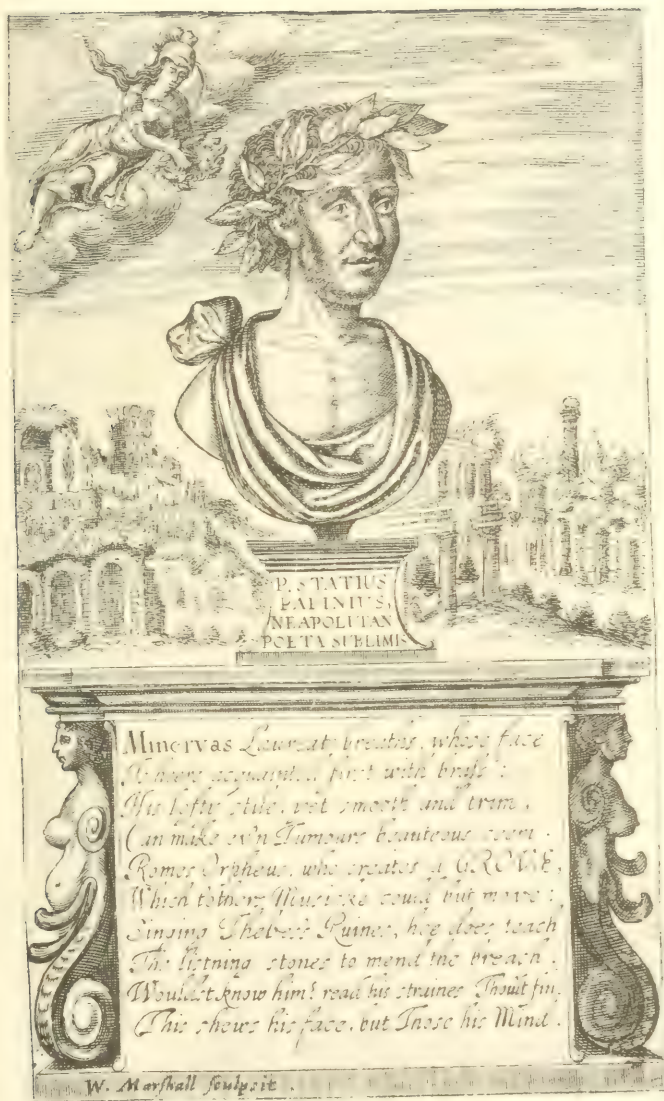 P. STATIUS
PAPINIUS,
NEAPOLITAN
POETA SUBLIMIS
Minervas Laureat breaths, whose face
acquaint first with brass:
His lofty stile, yet smooth and trim,
Can make ev'n Tumours beauteous seem.
Romes Orpheus, who creates a GROVE,
Which tothers Musicke could but move:
Singing Thebe's Ruines, hee does teach
The listning stones to mend the breach.
Wouldst know him? read his straines Thou'lt fin
This shews his face, but Those his Mind.
W. Marshall sculpsit.